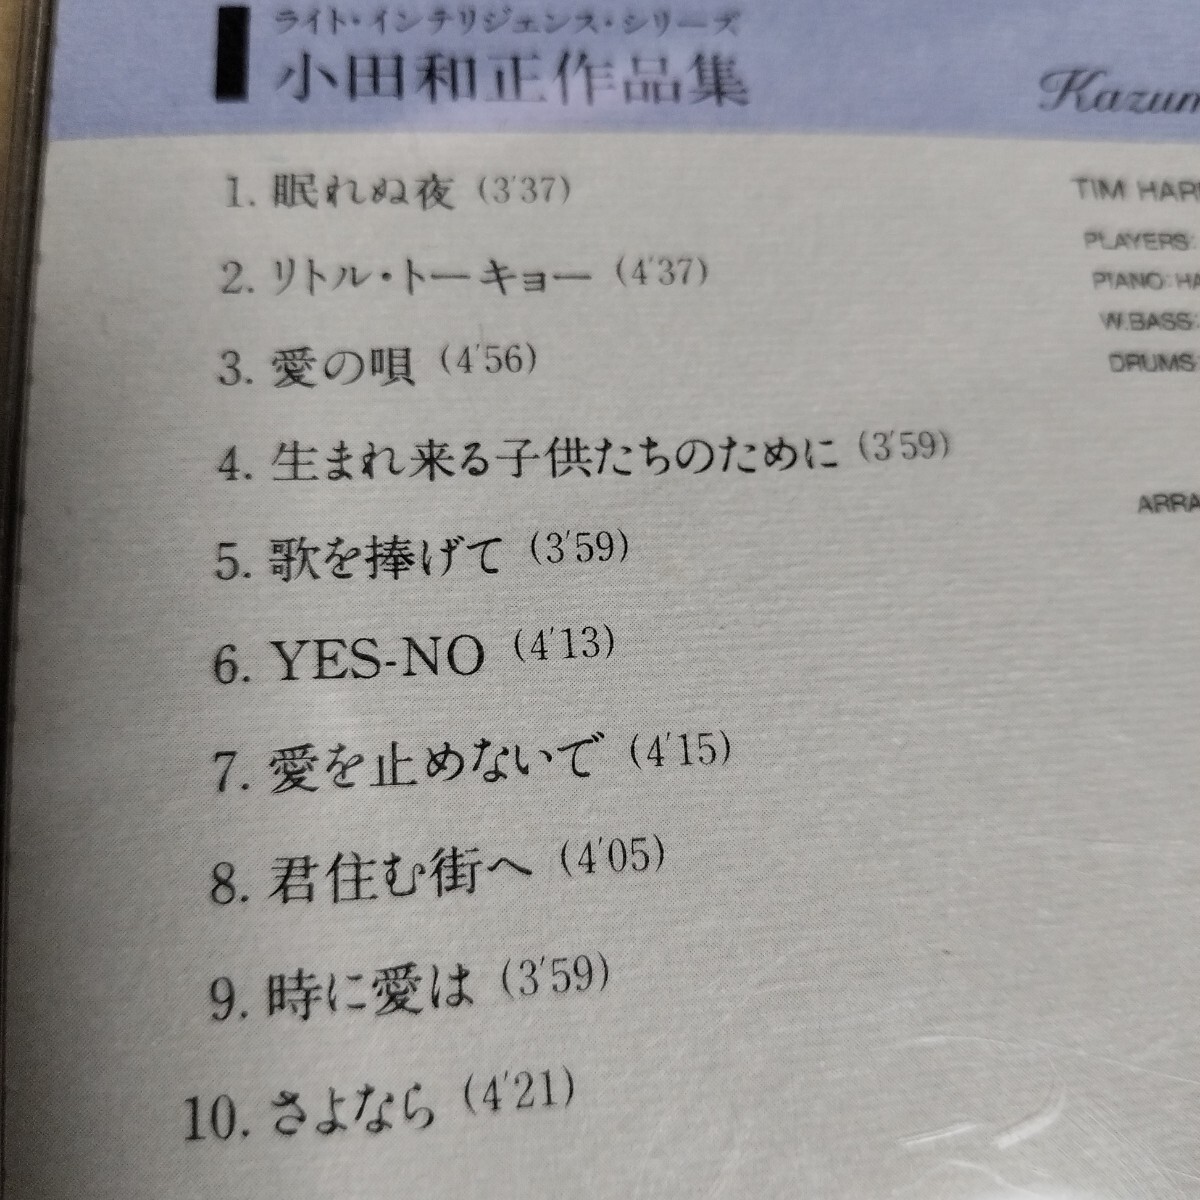 ライト・インテリジェンス・シリーズ
小田和正作品集
1. 眠れぬ夜 (3'37)
2. リトル・トーキョー (4'37)
3. 愛の唄 (4'56)
4. 生まれ来る子供たちのために (3'59)
5. 歌を捧げて (3'59)
6. YES-NO (4'13)
7. 愛を止めないで (4'15)
8. 君住む街へ (4'05)
9. 時に愛は (3'59)
10. さよなら (4'21)
Kazum
TIM HAR
PLAYERS:
PIANO: HA
W.BASS:
DRUMS:
ARRA